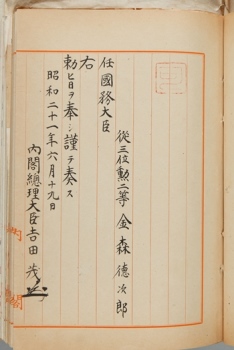 從三位勲二等 金森德次郎
任國務大臣
右
勅旨ヲ奉シ謹テ奏ス
昭和二十一年六月十九日
內閣總理大臣吉田茂
內閣